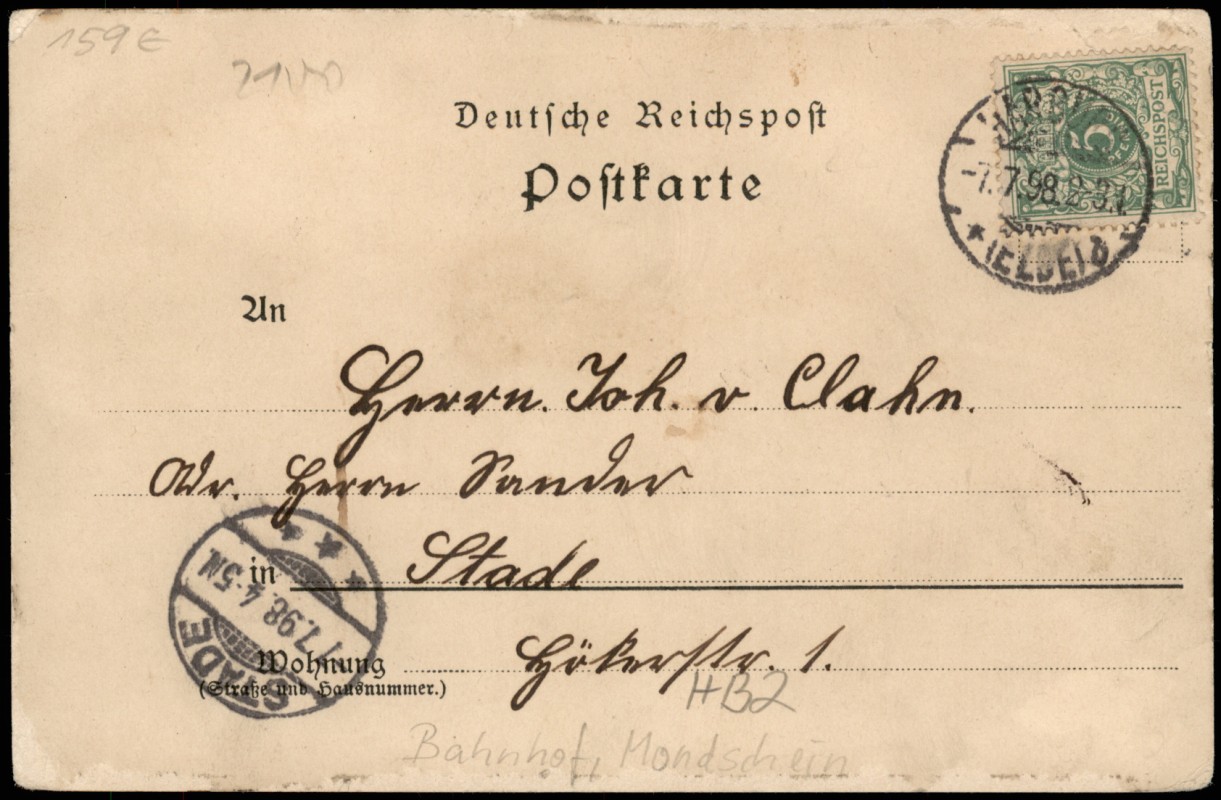 159 €
2100
Deutsche Reichspost
Postkarte
5
REICHSPOST
7.7.98.2-3N.
* (ELBE) b
An
Herrn. Joh. v. Clahn.
Adr. Herrn Sander
in Stade
STADE
7.7.98.4-5N.
Wohnung Hökerstr. 1.
(Straße und Hausnummer.)
HB2
Bahnhof, Mondschein